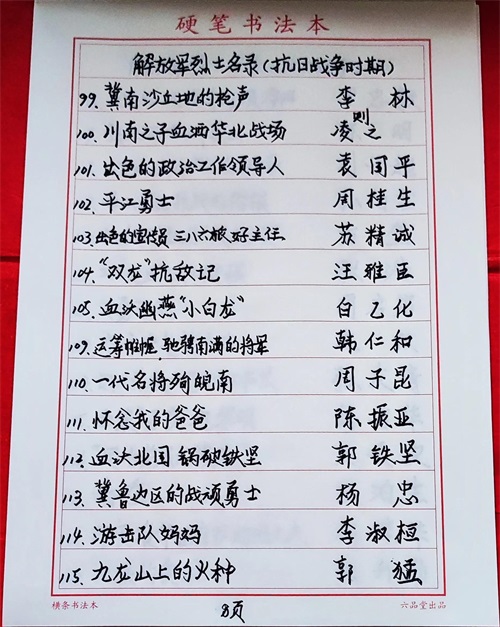 硬笔书法本
解放军烈士名录(抗日战争时期)
99、冀南沙丘地的枪声 李林
100、川南之子血洒华北战场 凌则之
101、出色的政治工作领导人 袁国平
102、平江勇士 周桂生
103、出色的宣传员 三八六旅好主任 苏精诚
104、“双龙”抗敌记 汪雅臣
105、血沃幽燕“小白龙” 白乙化
109、运筹帷幄、驰骋南满的将军 韩仁和
110、一代名将殉皖南 周子昆
111、怀念我的爸爸 陈振亚
112、血沃北国 锅破铁坚 郭铁坚
113、冀鲁边区的战顽勇士 杨忠
114、游击队妈妈 李淑桓
115、九龙山上的火种 郭猛
横条书法本 8页 六品堂出品